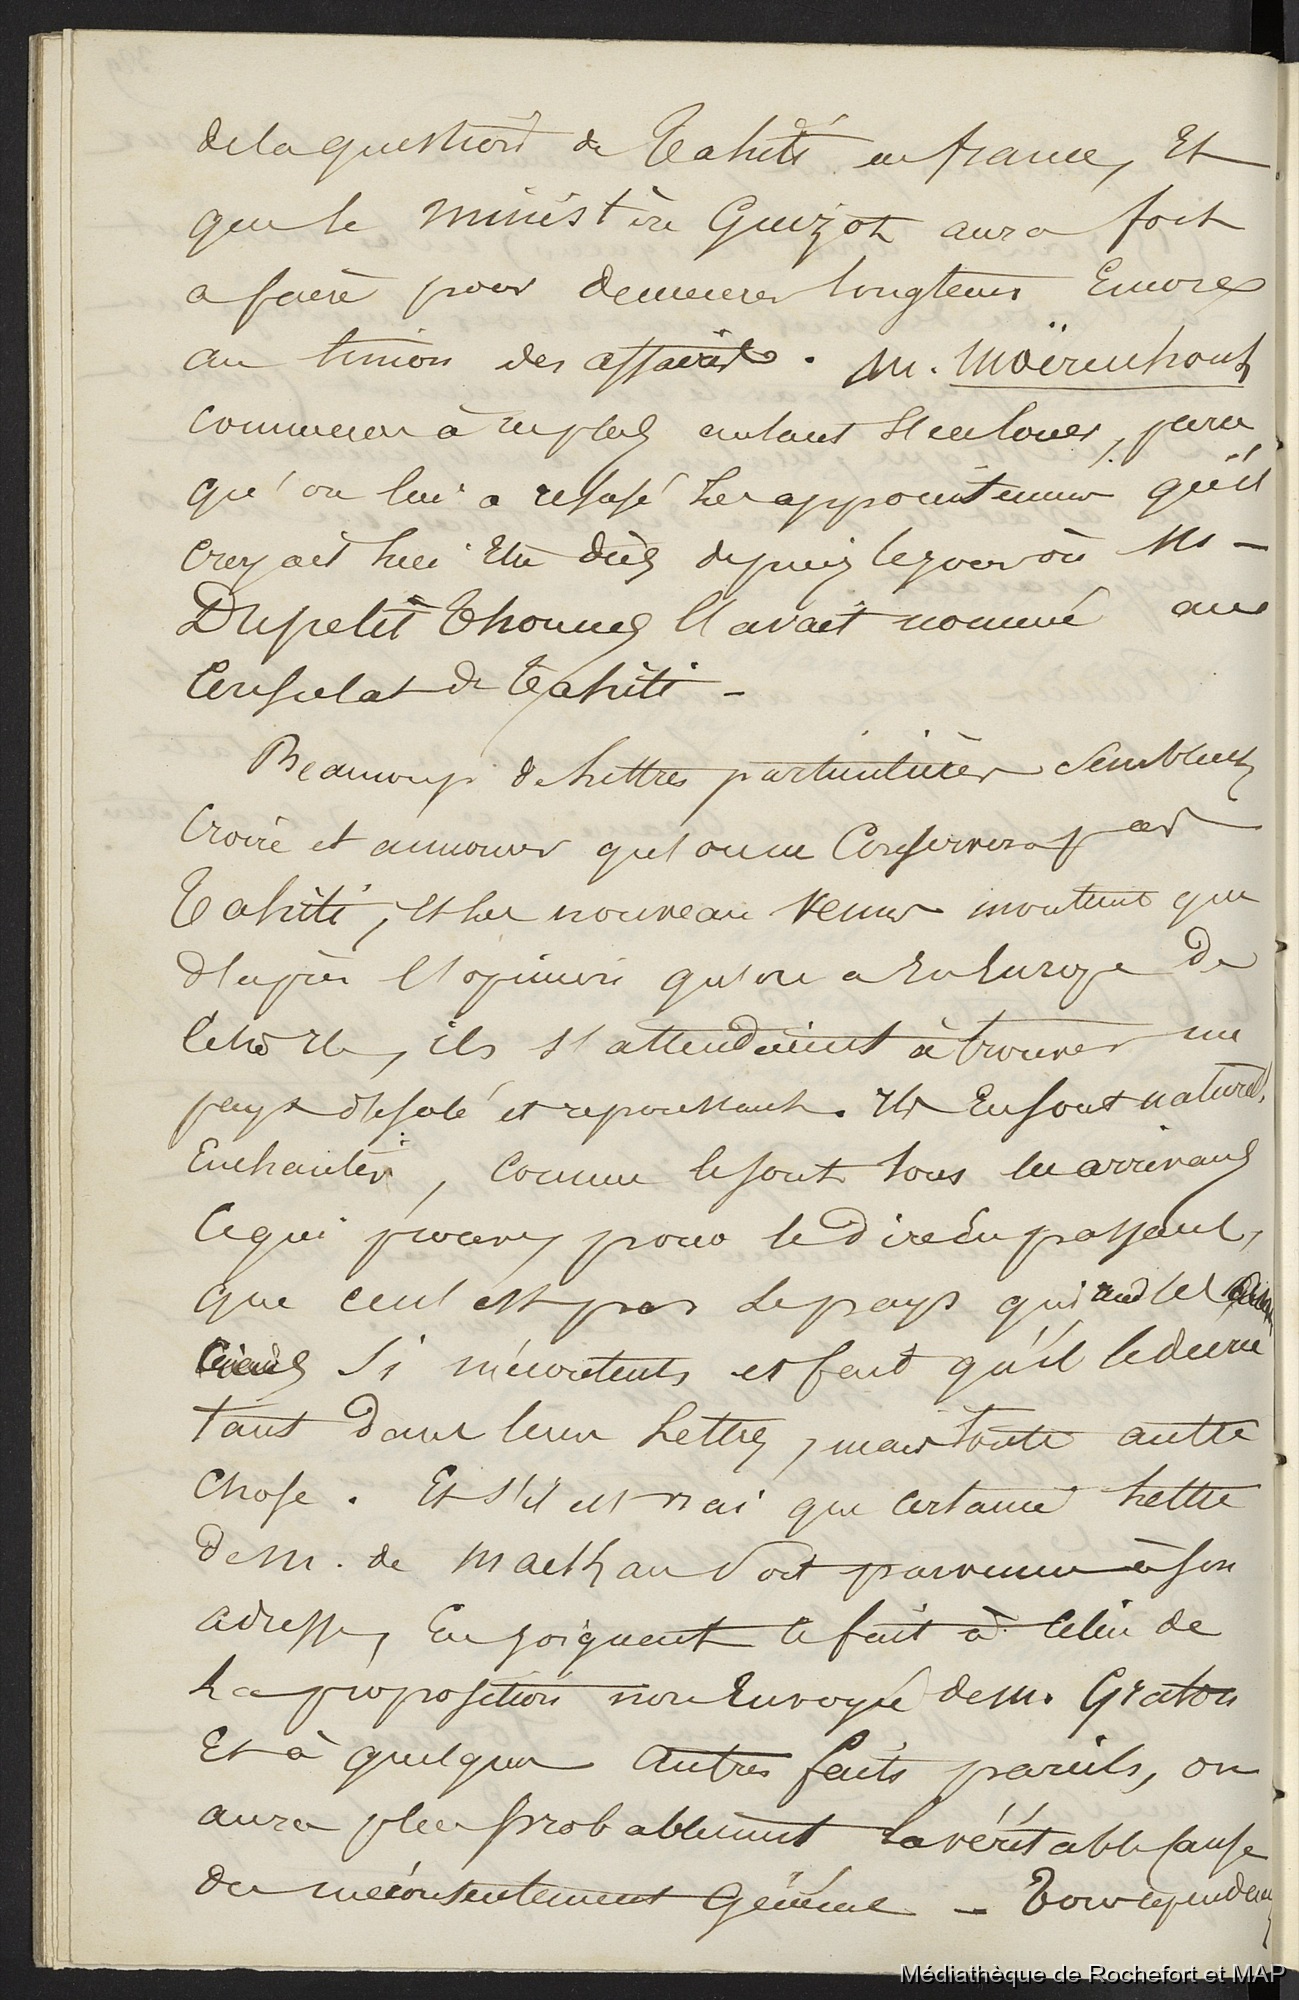 de la question de Tahiti en france, Et
que le ministère Guizot aura fort
a faire pour demeurer longtems Encore
au timon des affaires. M. Moërenhout
commence à se plaindre, parce
qu'on lui a refusé les appointemens qu'il
croyait lui être dûs depuis le jour où M
Dupetit Thouars l'avait nommé au
Consulat de Tahiti -
Beaucoup de lettres particulières semblent
croire et annoncer qu'on ne Conservera pas
Tahiti, et les nouveau venus montrent que
d'après l'opinion qu'on a En Europe de
cette île, ils s'attendaient à trouver un
pays désolé et repoussant. Ils En sont naturel.
Enchantés, comme le sont tous les arrivans
Ce qui prouve, pour le dire En passant,
que ce n'est pas le pays qui rend les
si mécontents et fait qu'il le décrie
tant dans leurs lettres, mais toute autre
chose. Et s'il est vrai que certaine lettre
de M. de Mackau soit parvenue à son
adresse, En joignant ce fait à celui de
La proposition non Envoyée de M. Graton
Et à quelques autres faits pareils, on
aura plus probablement la véritable cause
du mécontentement Général - Tous cependant
Médiathèque de Rochefort et MAP